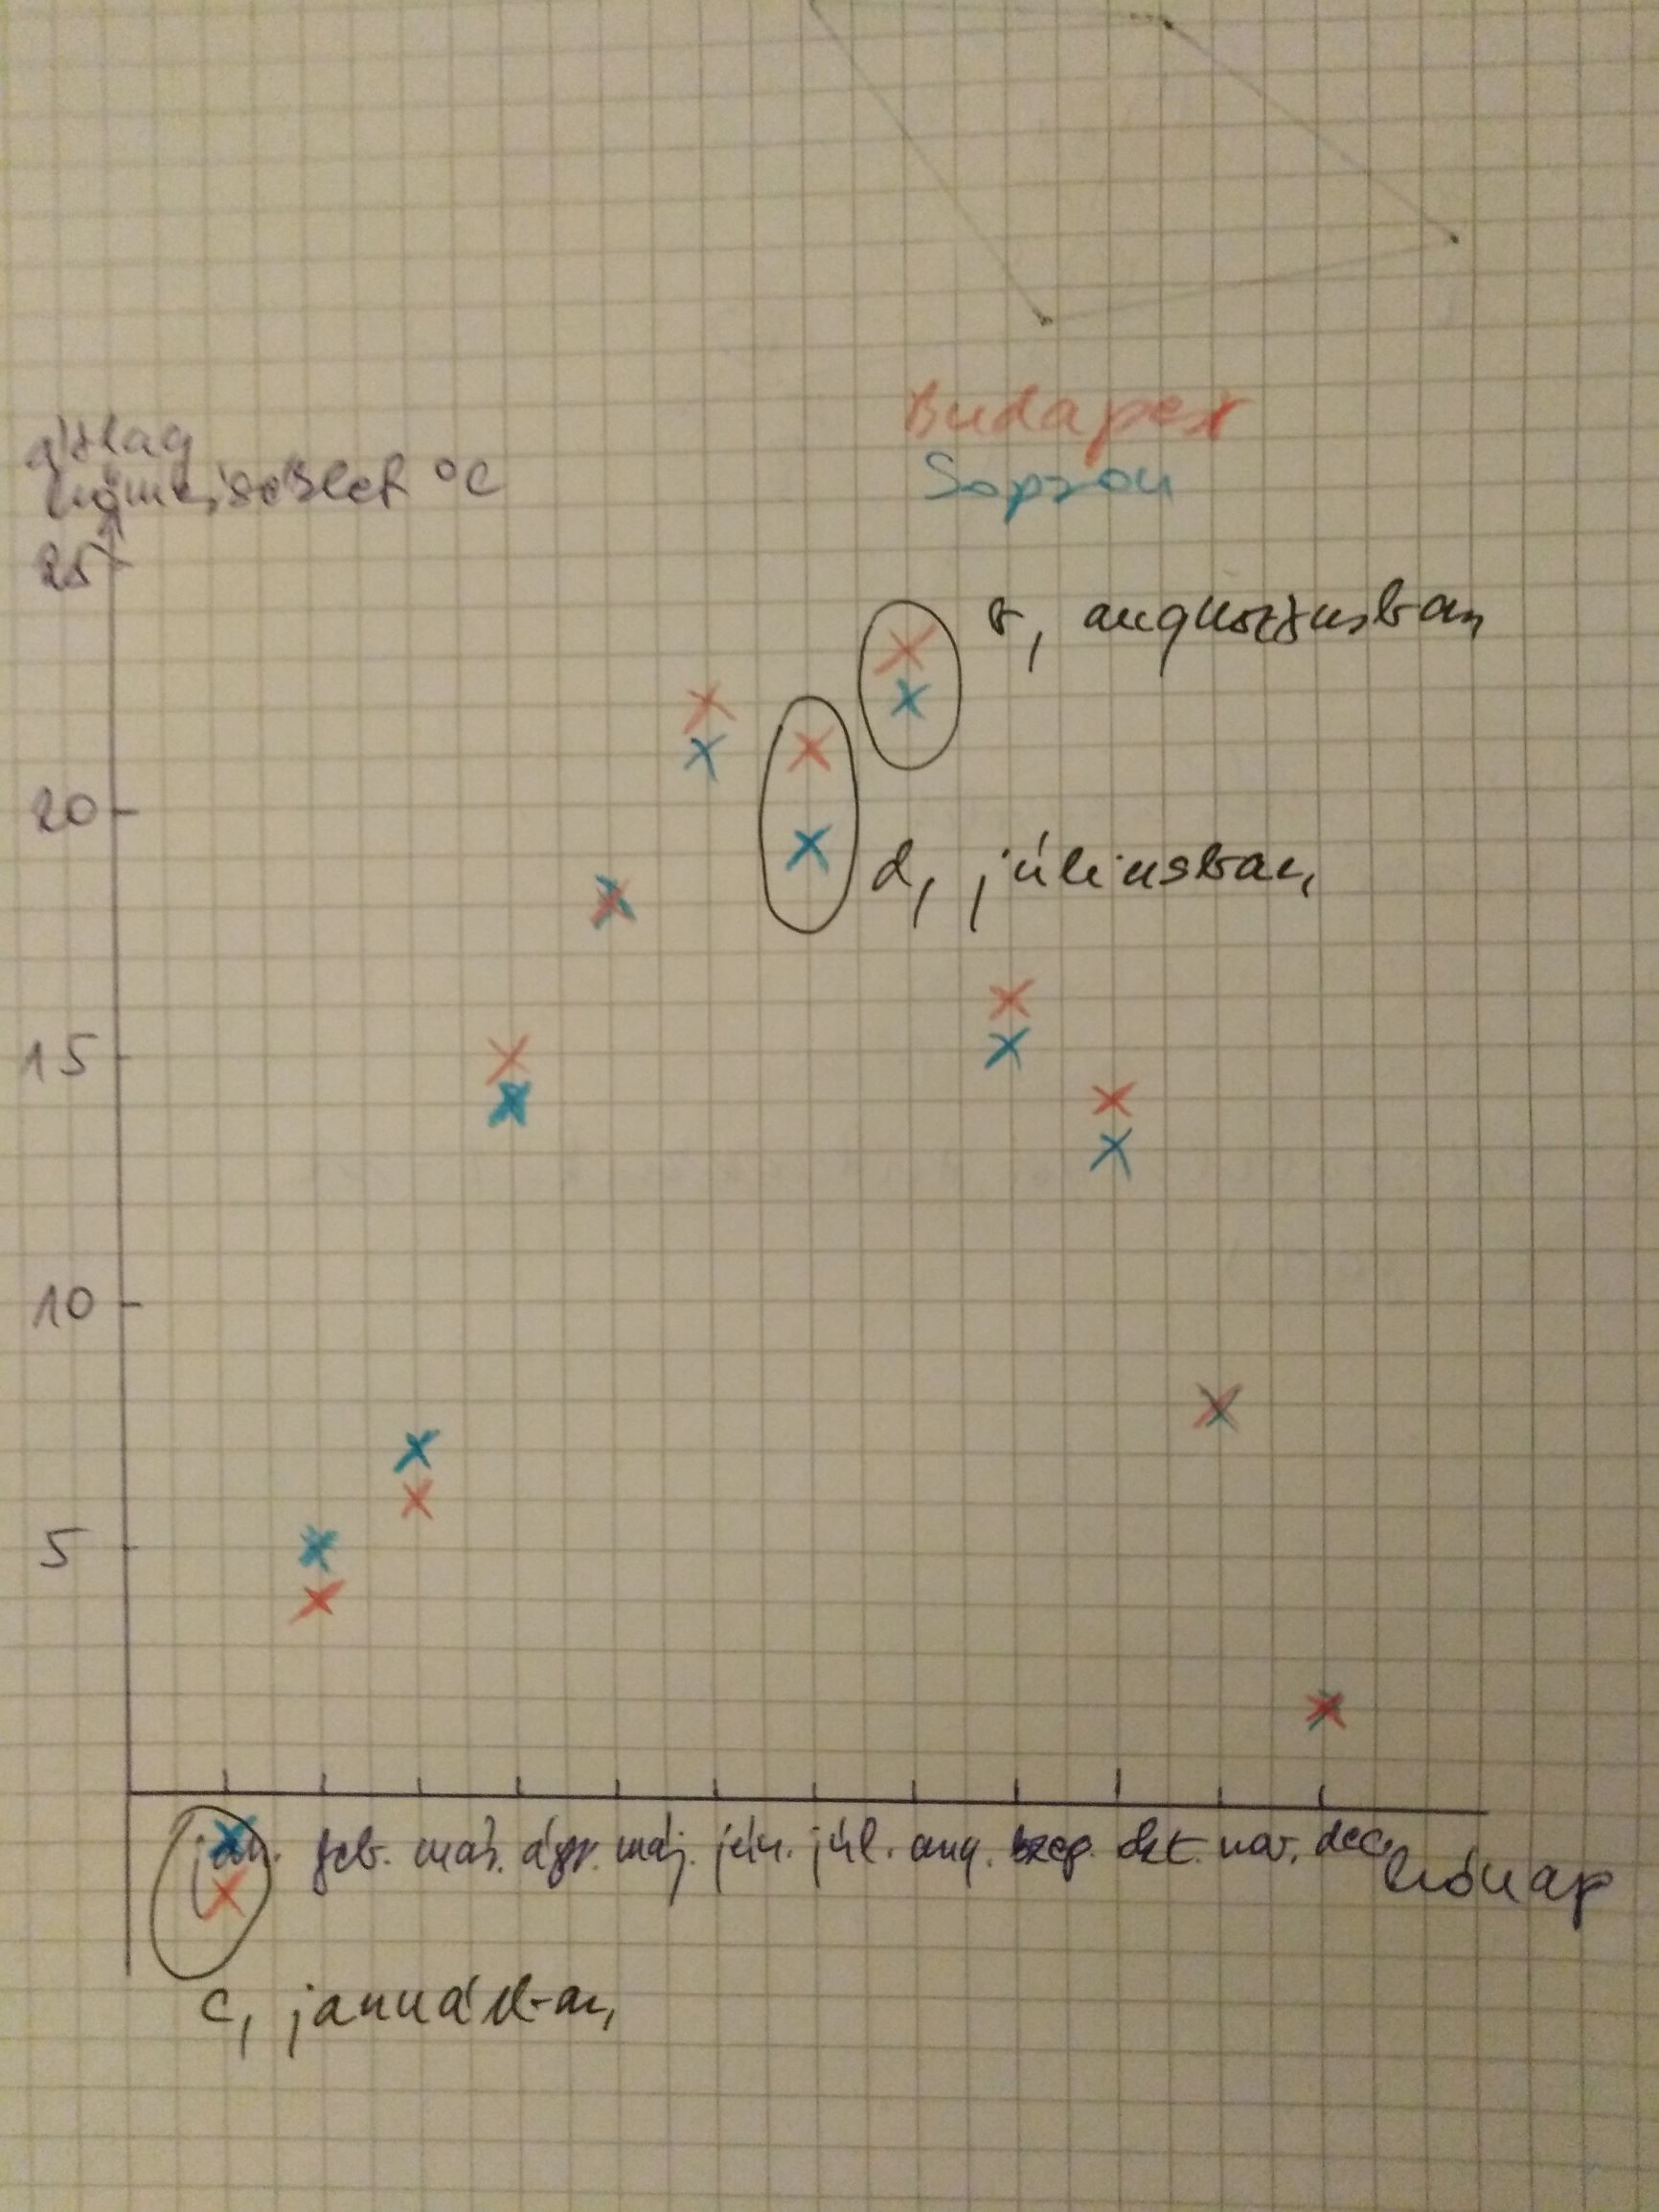 Budapest
Sopron
átlag
hőmérséklet °C
25
b, augusztusban
20
d, júliusban
15
10
5
jan. feb. már. ápr. máj. jún. júl. aug. szep. okt. nov. dec.
hónap
c, januárban